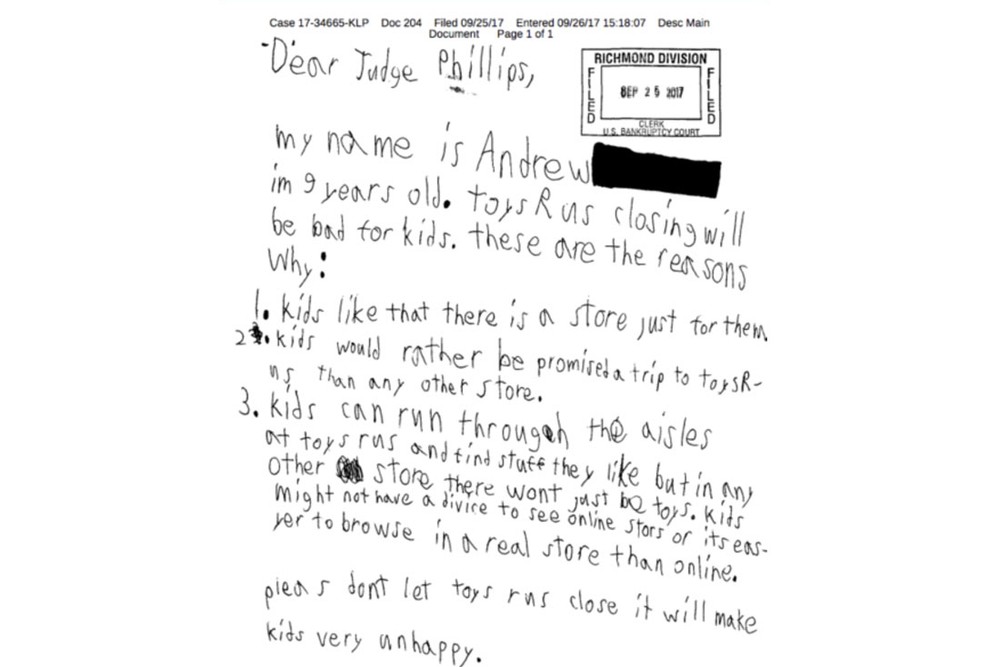 Case 17-34665-KLP Doc 204 Filed 09/25/17 Entered 09/26/17 15:18:07 Desc Main
Document Page 1 of 1
Dear Judge Phillips,
RICHMOND DIVISION
FILED
SEP 25 2017
FILED
CLERK
U.S. BANKRUPTCY COURT
my name is Andrew
im 9 years old. toys R us closing will
be bad for kids. these are the reasons
Why:
1. kids like that there is a store just for them
2. kids would rather be promised a trip to toysR-
us than any other store.
3. kids can run through the aisles
at toys rus and find stuff they like but in any
other store there wont just be toys. kids
might not have a divice to see online stors or its eas-
yer to browse in a real store than online.
pleas dont let toys rus close it will make
kids very unhappy.